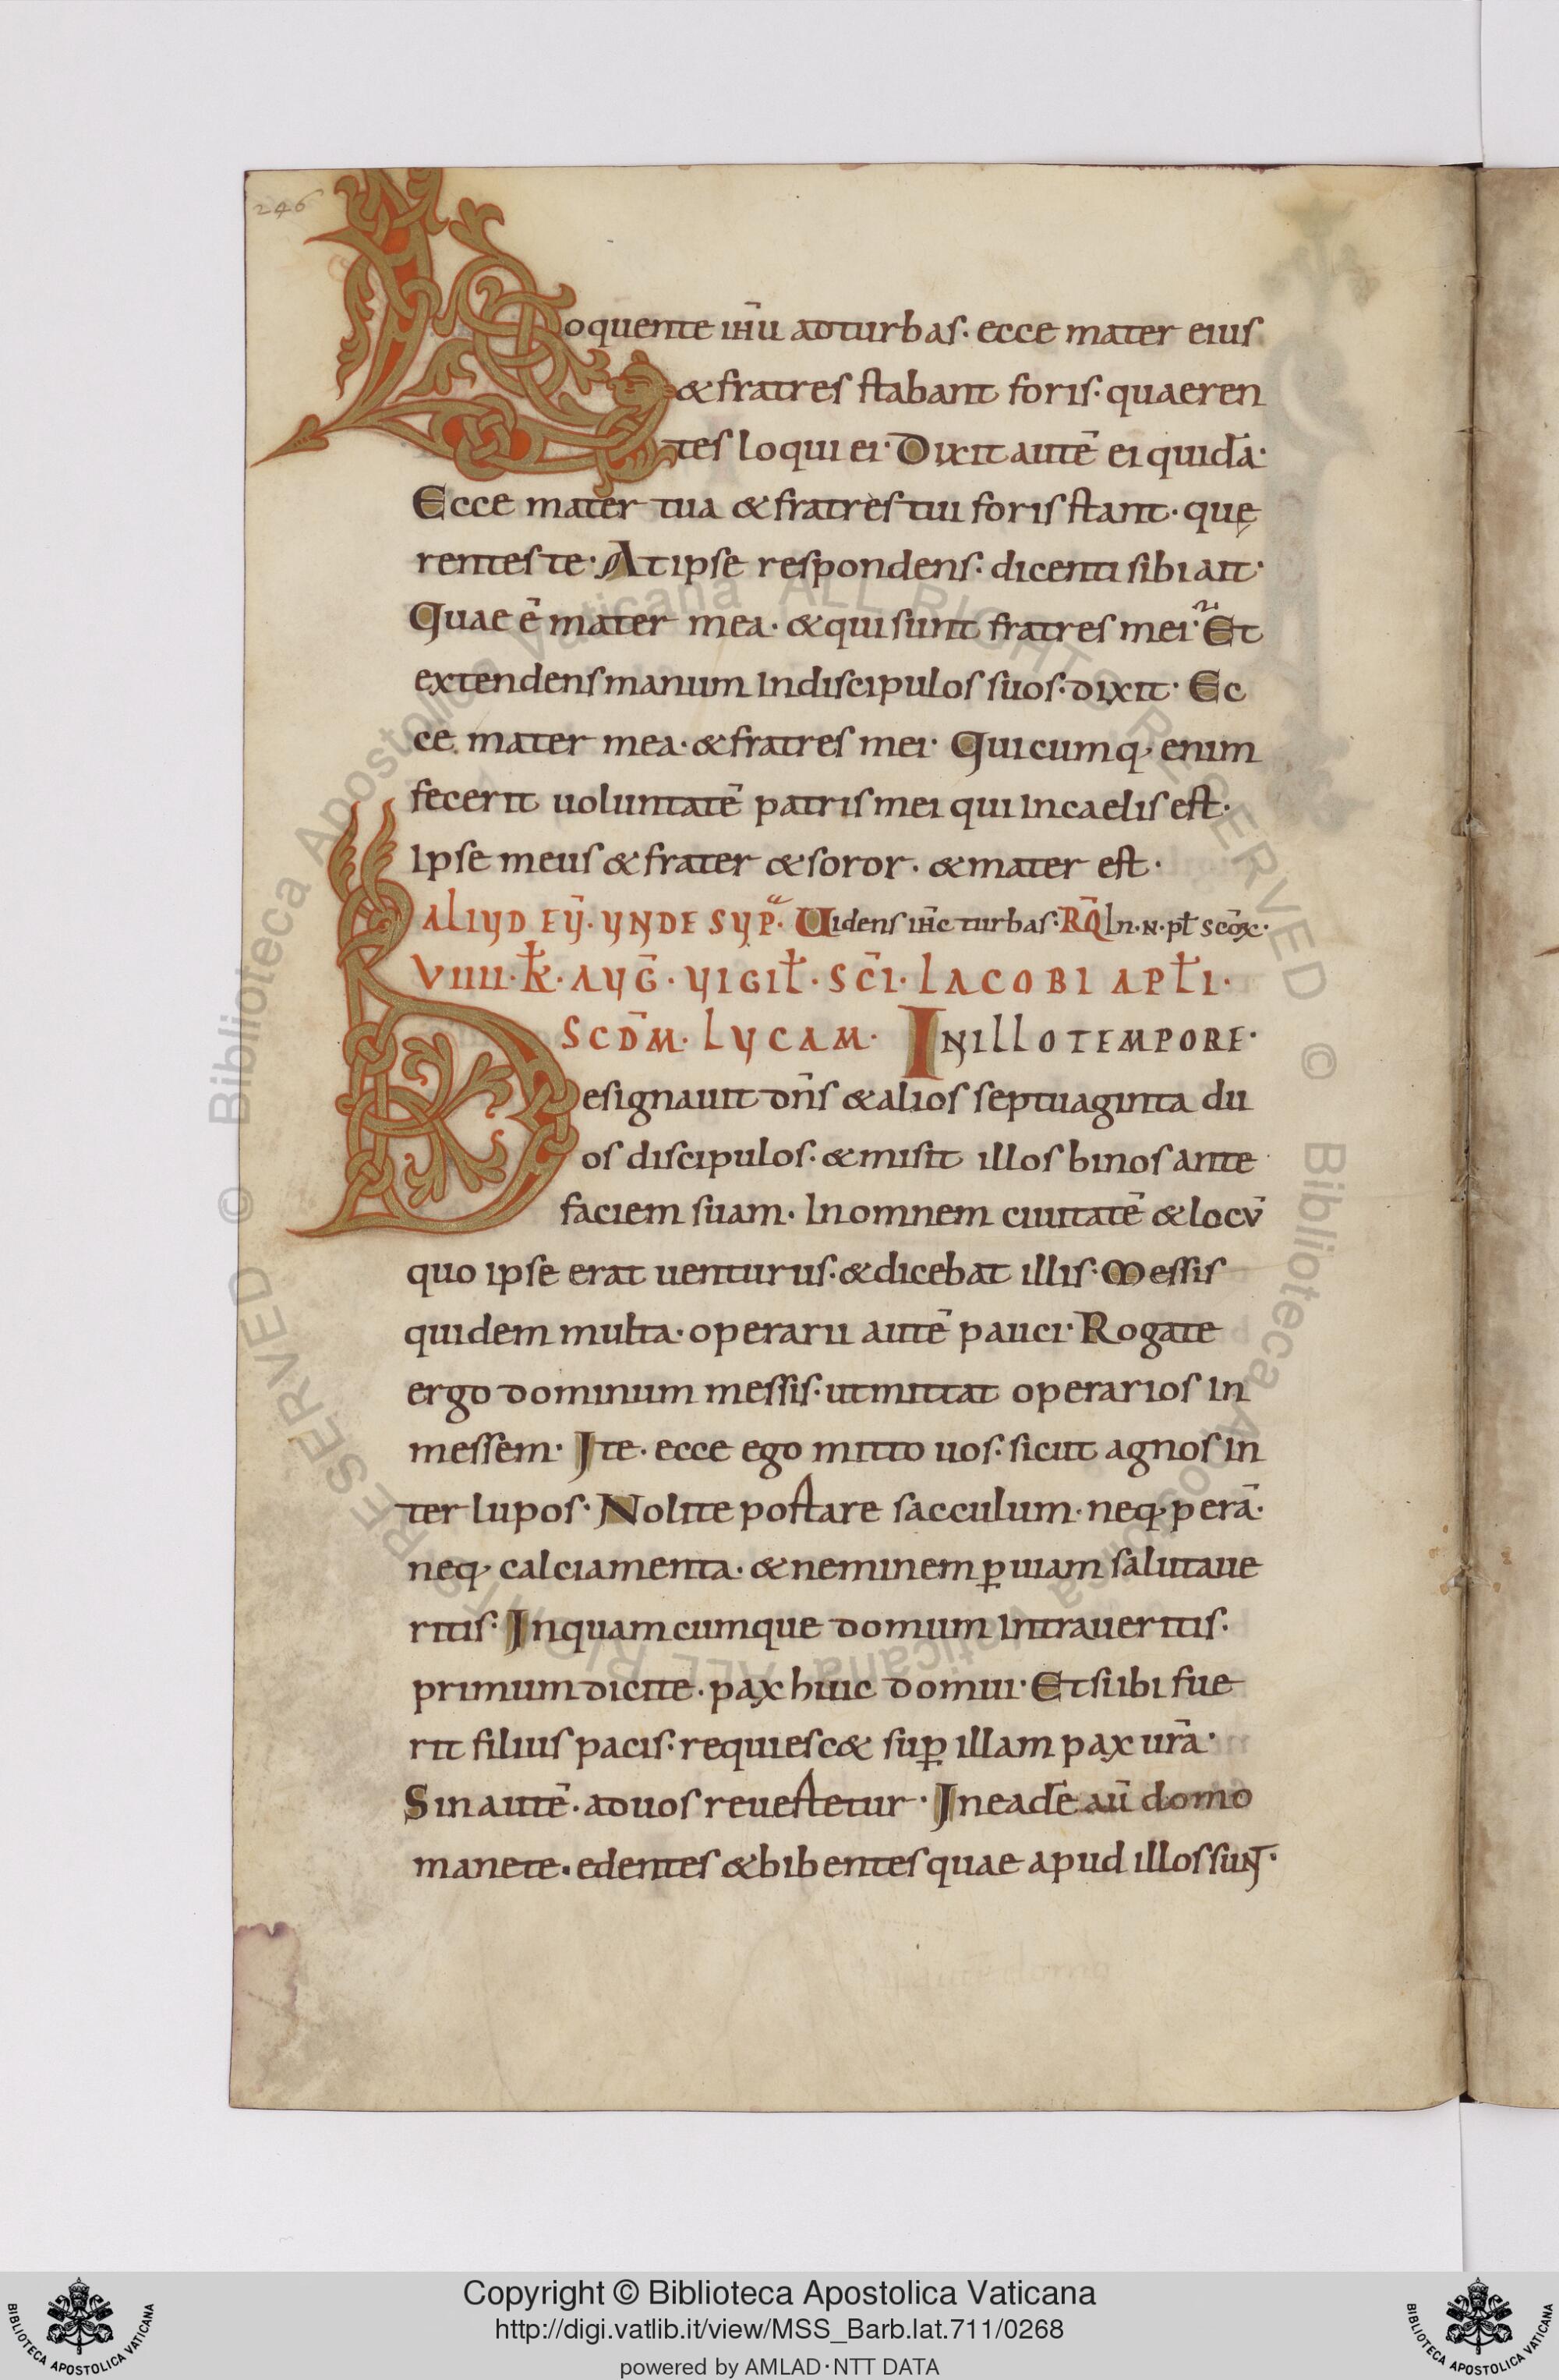 246
Loquente ih̄u ad turbas· ecce mater eius
& fratres stabant foris· quaeren
tes loqui ei· Dixit autē ei quidā·
Ecce mater tua & fratres tui foris stant· quę
rentes te· At ipse respondens· dicenti sibi ait·
Quae ē mater mea· & qui sunt fratres mei· Et
extendens manum In discipulos suos· dixit· Ec
ce mater mea· & fratres mei· Quicumq· enim
fecerit uoluntatē patris mei qui In caelis est·
Ipse meus & frater & soror· & mater est·
ALIUD EŪ· UNDE SUP̄· Uidens ih̄c turbas· RQ̄ In· N· pł scōꝝ·
VIIII· K̄· AUḠ· VIGIŁ· SC̄I· IACOBI APŁI·
SCD̄M· LUCAM· IN ILLO TEMPORE·
Designauit dn̄s & alios septuaginta du
os discipulos· & misit illos binos ante
faciem suam· In omnem ciuitatē & locū
quo ipse erat uenturus· & dicebat illis· Messis
quidem multa· operarii autē pauci· Rogate
ergo dominum messis· ut mittat operarios In
messem· Ite· ecce ego mitto uos· sicut agnos In
ter lupos· Nolite portare sacculum· neq· perā·
neq· calciamenta· & neminem ꝑ uiam salutaue
ritis· In quamcumque domum Intraueritis·
primum dicite· pax huic domui· Et si ibi fue
rit filius pacis· requiesc& suꝑ illam pax ur̄a·
Sin autē· ad uos reuertetur· In eadē aū domo
manete· edentes & bibentes quae apud illos sunt·
Copyright © Biblioteca Apostolica Vaticana
http://digi.vatlib.it/view/MSS_Barb.lat.711/0268
powered by AMLAD·NTT DATA
BIBLIOTECA APOSTOLICA VATICANA
BIBLIOTECA APOSTOLICA VATICANA
© Biblioteca Apostolica Vaticana ALL RIGHTS RESERVED
© Biblioteca Apostolica Vaticana ALL RIGHTS RESERVED